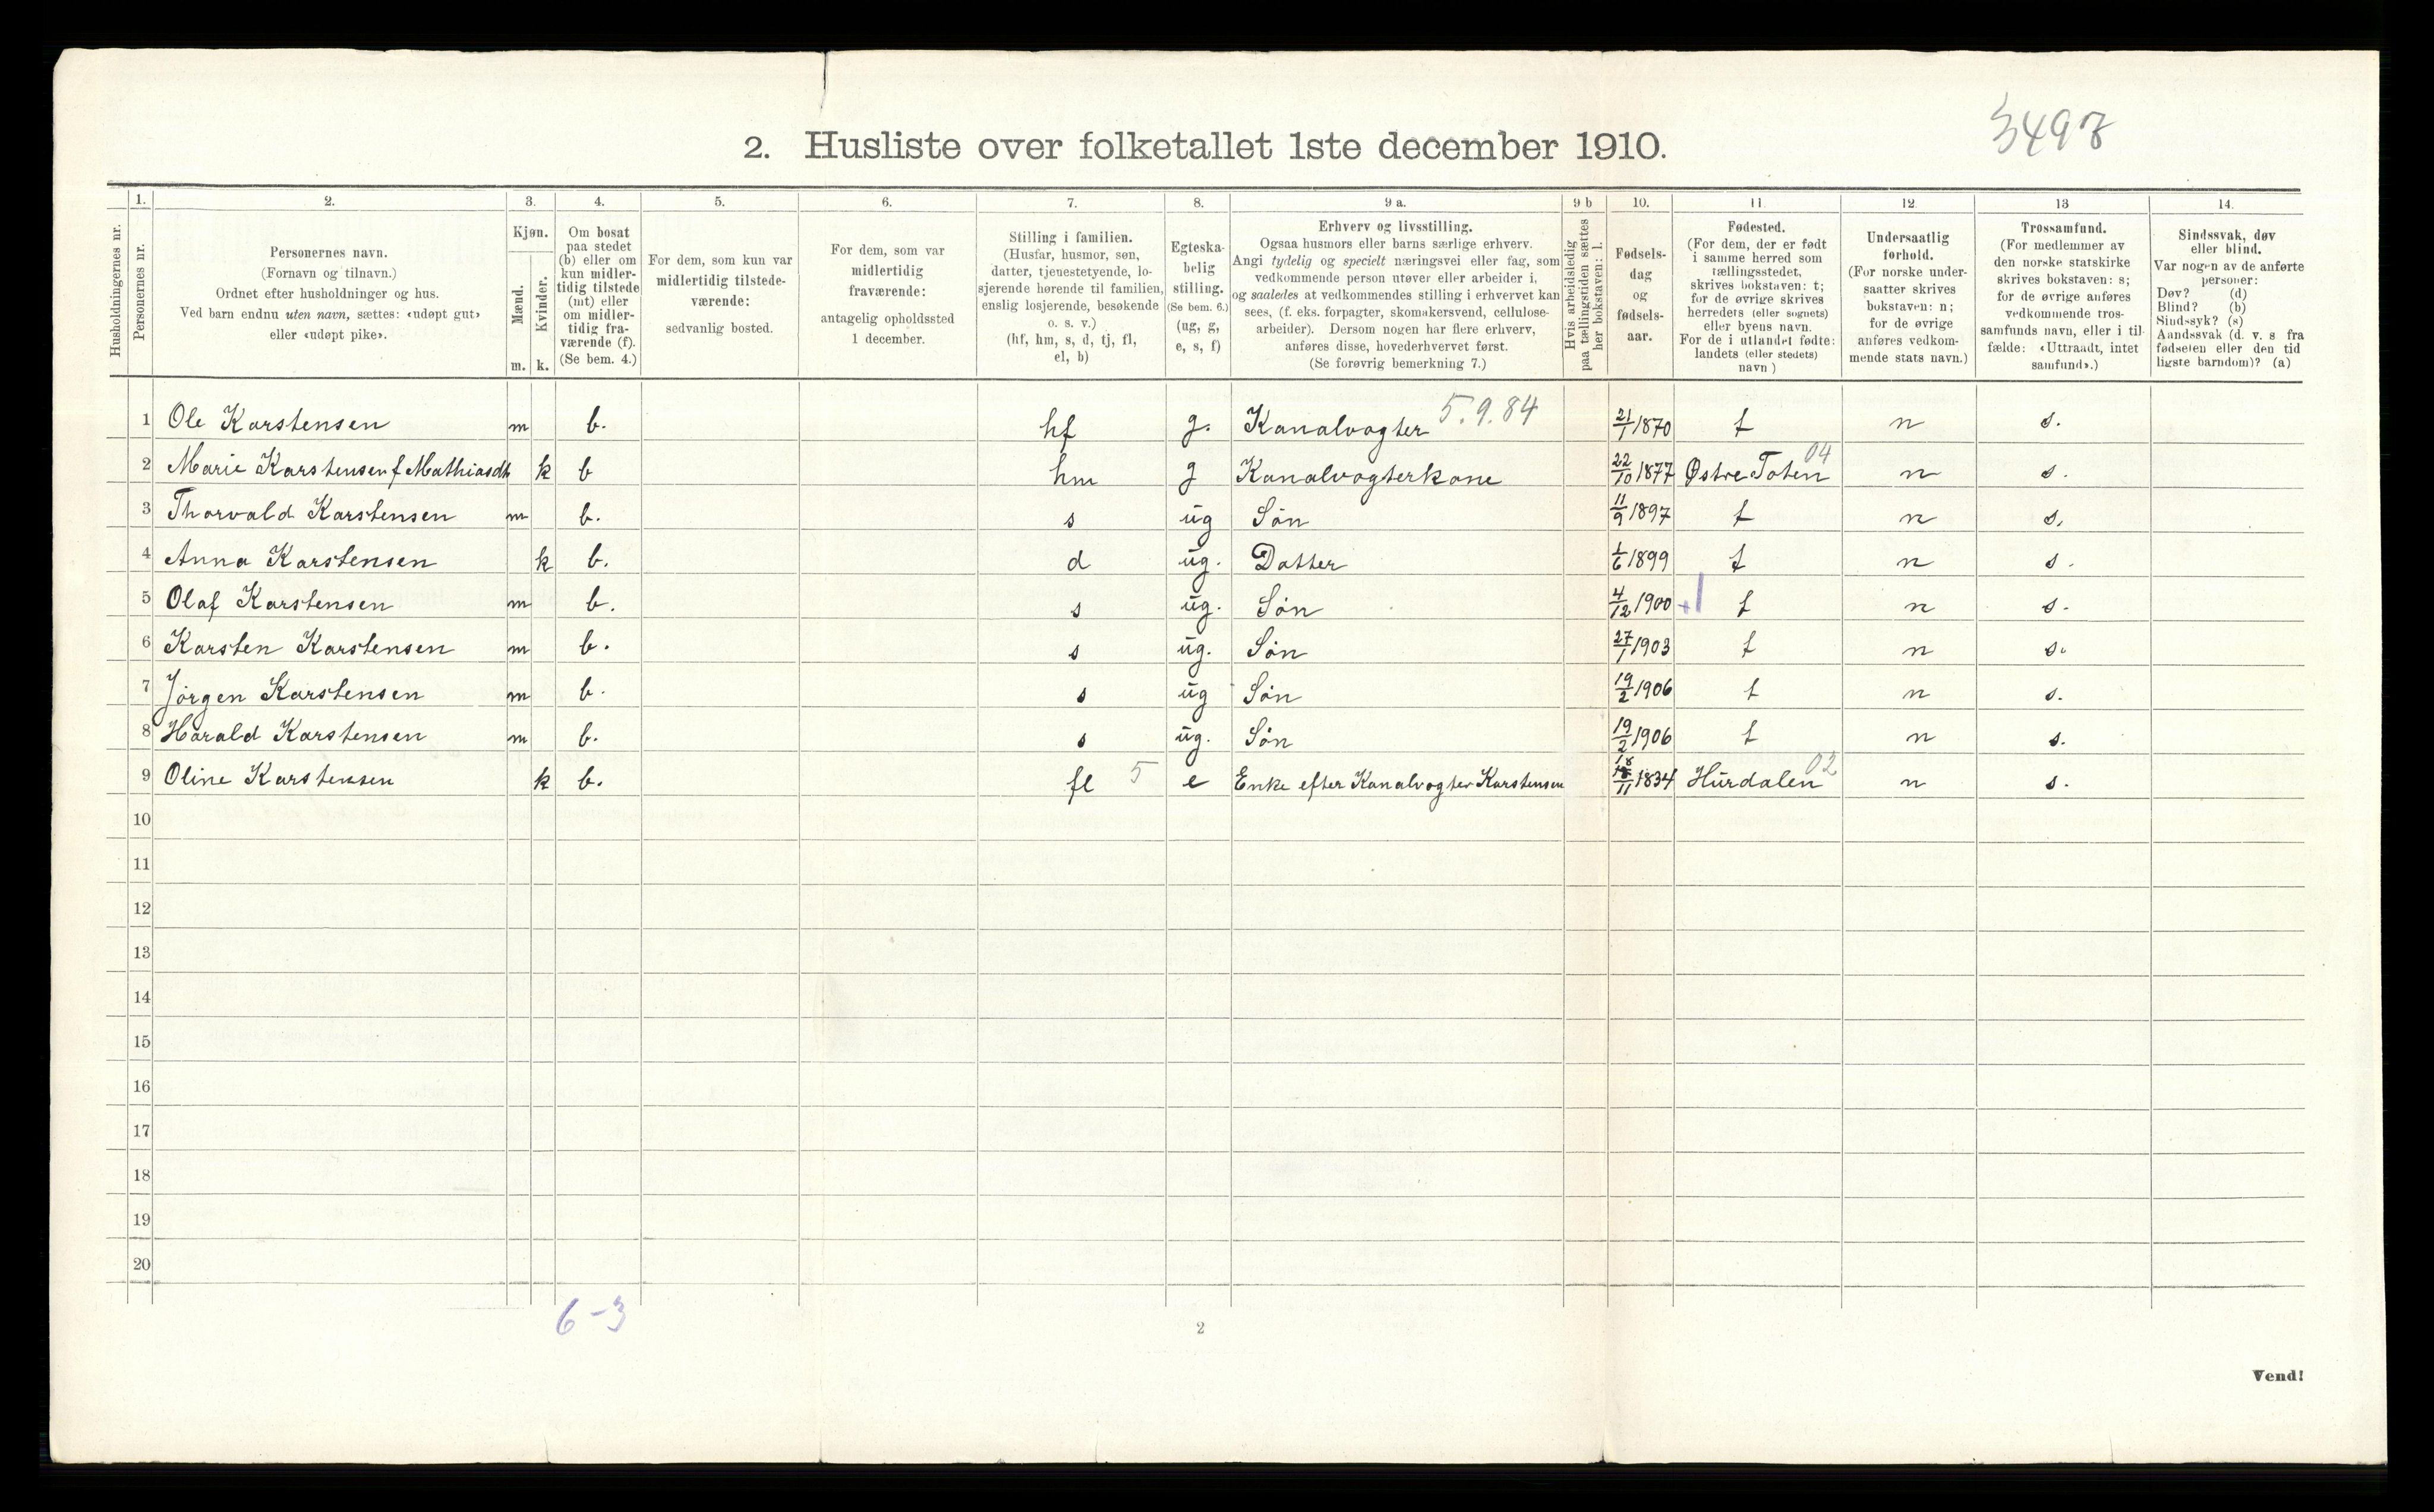 3498
2. Husliste over folketallet 1ste december 1910.
Husholdningernes nr.
1.
Personernes nr.
2.
Personernes navn.
(Fornavn og tilnavn.)
Ordnet efter husholdninger og hus.
Ved barn endnu uten navn, sættes: «udøpt gut»
eller «udøpt pike».
3.
Kjøn.
Mænd.
Kvinder.
m. k.
4.
Om bosat
paa stedet
(b) eller om
kun midler-
tidig tilstede
(mt) eller
om midler-
tidig fra-
værende (f).
(Se bem. 4.)
5.
For dem, som kun var
midlertidig tilstede-
værende:
sedvanlig bosted.
6.
For dem, som var
midlertidig
fraværende:
antagelig opholdssted
1 december.
7.
Stilling i familien.
(Husfar, husmor, søn,
datter, tjenestetyende, lo-
sjerende hørende til familien,
enslig losjerende, besøkende
o. s. v.)
(hf, hm, s, d, tj, fl,
el, b)
8.
Egteska-
belig
stilling.
(Se bem. 6.)
(ug, g,
e, s, f)
9 a.
Erhverv og livsstilling.
Ogsaa husmors eller barns særlige erhverv.
Angi tydelig og specielt næringsvei eller fag, som
vedkommende person utøver eller arbeider i,
og saaledes at vedkommendes stilling i erhvervet kan
sees, (f. eks. forpagter, skomakersvend, cellulose-
arbeider). Dersom nogen har flere erhverv,
anføres disse, hovederhvervet først.
(Se forøvrig bemerkning 7.)
9 b
Hvis arbeidsledig
paa tællingstiden sættes
her bokstaven: l.
10.
Fødsels-
dag
og
fødsels-
aar.
11.
Fødested.
(For dem, der er født
i samme herred som
tællingsstedet,
skrives bokstaven: t;
for de øvrige skrives
herredets (eller sognets)
eller byens navn.
For de i utlandet fødte:
landets (eller stedets)
navn)
12.
Undersaatlig
forhold.
(For norske under-
saatter skrives
bokstaven: n;
for de øvrige
anføres vedkom-
mende stats navn.)
13
Trossamfund.
(For medlemmer av
den norske statskirke
skrives bokstaven: s;
for de øvrige anføres
vedkommende tros-
samfunds navn, eller i til-
fælde: «Uttraadt, intet
samfund».)
14.
Sindssvak, døv
eller blind.
Var nogen av de anførte
personer:
Døv? (d)
Blind? (b)
Sindssyk? (s)
Aandssvak (d. v. s fra
fødselen eller den tid
ligste barndom)? (a)
1 Ole Karstensen m b. hf g. Kanalvogter 5.9.84 21/1 1870 t n s.
2 Marie Karstensen f Mathiasdt k b hm g Kanalvogterkone 22/10 1877 Østre Toten 04 n s.
3 Thorvald Karstensen m b. s ug Sön 11/9 1897 t n s.
4 Anna Karstensen k b. d ug. Datter 1/6 1899 t n s.
5 Olaf Karstensen m b. s ug. Sön 4/12 1900 +1 t n s.
6 Karsten Karstensen m b. s ug. Sön 27/1 1903 t n s.
7 Jörgen Karstensen m b. s ug Sön 19/2 1906 t n s.
8 Harald Karstensen m b. s ug. Sön 19/2 1906 t n s.
9 Oline Karstensen k b. fl 5 e Enke efter Kanalvogter Karstensen 18/11 1834 Hurdalen 02 n s.
10
11
12
13
14
15
16
17
18
19
20
6-3
2
Vend!